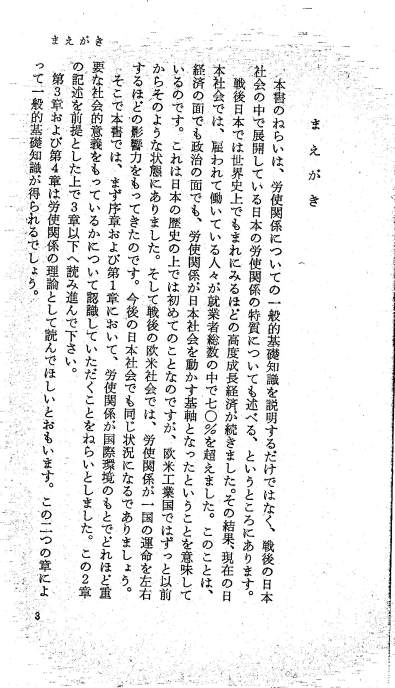 まえがき
まえがき
本書のねらいは、労使関係についての一般的基礎知識を説明するだけではなく、戦後の日本
社会の中で展開している日本の労使関係の特質についても述べる、というところにあります。
戦後日本では世界史上でもまれにみるほどの高度成長経済が続きました。その結果、現在の日
本社会では、雇われて働いている人々が就業者総数の中で七〇%を超えました。このことは、
経済の面でも政治の面でも、労使関係が日本社会を動かす基軸となったということを意味して
いるのです。これは日本の歴史の上では初めてのことなのですが、欧米工業国ではずっと以前
からそのような状態にありました。そして戦後の欧米社会では、労使関係が一国の運命を左右
するほどの影響力をもってきたのです。今後の日本社会でも同じ状況になるでありましょう。
そこで本書では、まず序章および第1章において、労使関係が国際環境のもとでどれほど重
要な社会的意義をもっているかについて認識していただくことをねらいとしました。この2章
の記述を前提とした上で3章以下へ読み進んで下さい。
第3章および第4章は労使関係の理論として読んでほしいとおもいます。この二つの章によ
って一般的基礎知識が得られるでしょう。
3